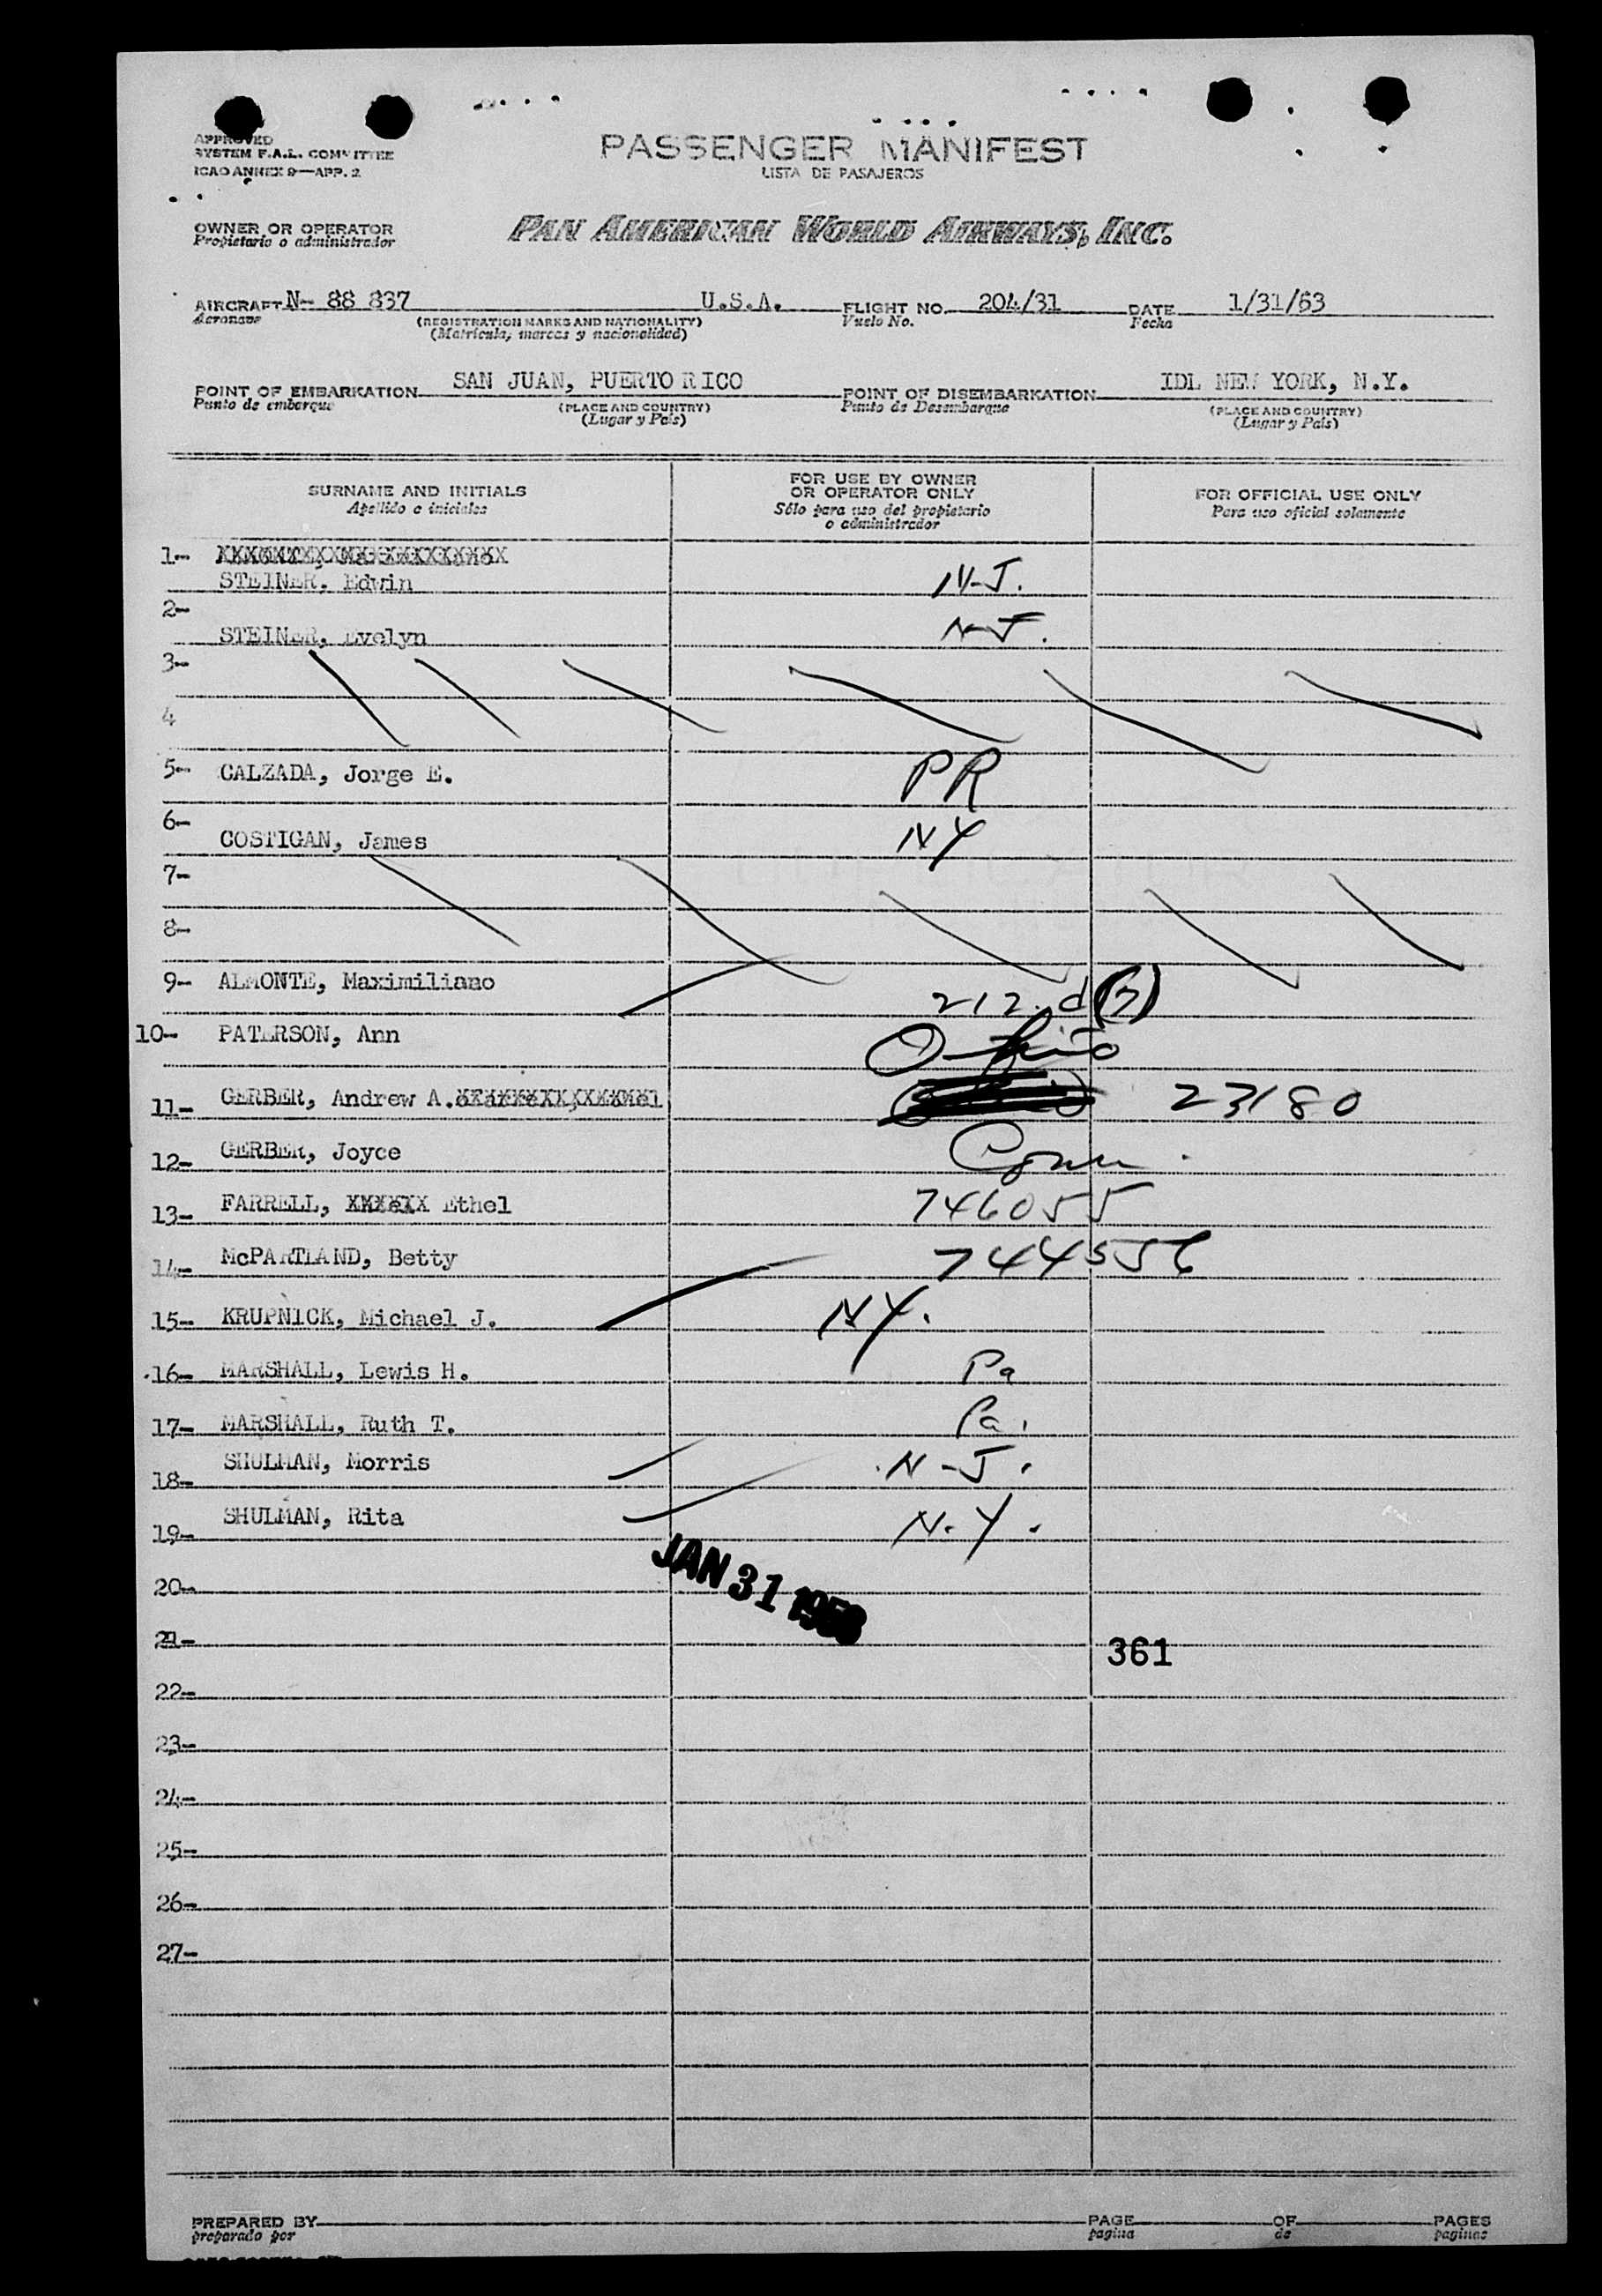 APPROVED
SYSTEM F.A.L. COMMITTEE
ICAO ANNEX 9—APP. 2
PASSENGER MANIFEST
LISTA DE PASAJEROS
OWNER OR OPERATOR
Propietario o administrador
PAN AMERICAN WORLD AIRWAYS, INC.
AIRCRAFT N- 88 837 U.S.A. FLIGHT NO. 204/31 DATE 1/31/53
Aeronave (REGISTRATION MARKS AND NATIONALITY) Vuelo No. Fecha
(Matrícula, marcas y nacionalidad)
POINT OF EMBARKATION SAN JUAN, PUERTO RICO POINT OF DISEMBARKATION IDL NEW YORK, N.Y.
Punto de embarque (PLACE AND COUNTRY) Punto de Desembarque (PLACE AND COUNTRY)
(Lugar y País) (Lugar y País)
SURNAME AND INITIALS FOR USE BY OWNER OR OPERATOR ONLY FOR OFFICIAL USE ONLY
Apellido e iniciales Sólo para uso del propietario o administrador Para uso oficial solamente
1-
STEINER, Edwin N-J.
2-
STEINER, Evelyn N-J.
3-
4
5- CALZADA, Jorge E. PR
6-
COSTIGAN, James NY
7-
8-
9- ALMONTE, Maximiliano 212.d(7)
10- PATERSON, Ann Ohio
11- GERBER, Andrew A. 23180
12- GERBER, Joyce Conn.
13- FARRELL, Ethel 746055
14- McPARTLAND, Betty 744556
15- KRUPNICK, Michael J. NY.
16- MARSHALL, Lewis H. Pa
17- MARSHALL, Ruth T. Pa.
18- SHULMAN, Morris N-J.
19- SHULMAN, Rita N.Y.
JAN 31 1953
20-
21-
361
22-
23-
24-
25-
26-
27-
PREPARED BY PAGE OF PAGES
preparado por pagina de paginas